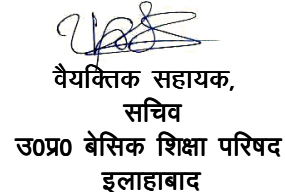 वैयक्तिक सहायक,
सचिव
उ0प्र0 बेसिक शिक्षा परिषद
इलाहाबाद